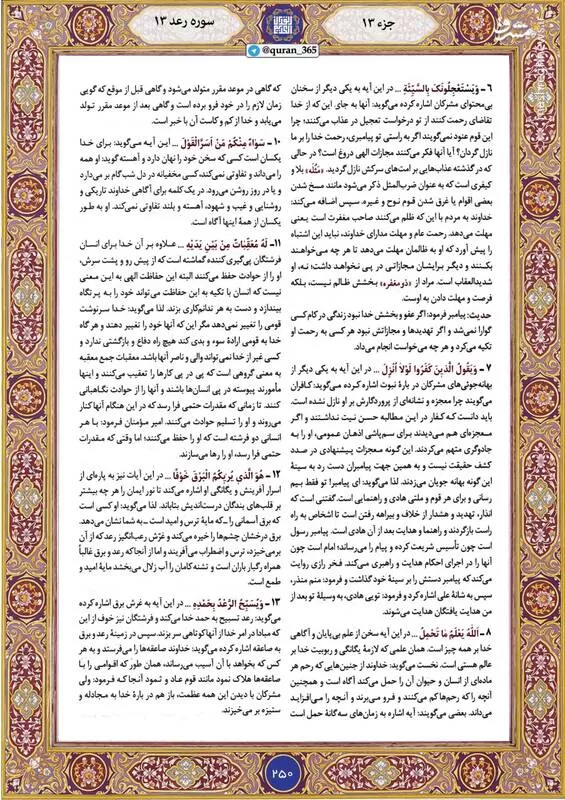 جزء ۱۳
سوره رعد ۱۳
@quran_365
مشرق
۶ - وَيَسْتَعْجِلُونَكَ بِالسَّيِّئَةِ ... در این آیه به یکی دیگر از سخنان
بی‌محتوای مشرکان اشاره کرده می‌گوید: آنها به جای این که از خدا
تقاضای رحمت کنند از تو درخواست تعجیل در عذاب می‌کنند؛ چرا
این قوم عنود نمی‌گویند اگر به راستی تو پیامبری، رحمت خدا را بر ما
نازل گردان؟ آیا آنها فکر می‌کنند مجازات الهی دروغ است؟ در حالی
که در گذشته عذاب‌هایی بر امت‌های سرکش نازل گردید. «مَثُلَه» بلا و
کیفری است که به عنوان ضرب‌المثل ذکر می‌شود مانند مسخ شدن
بعضی اقوام یا غرق شدن قوم نوح و غیره. سپس اضافه می‌کند:
خداوند به مردم با این که ظلم می‌کنند صاحب مغفرت است یعنی
مهلت می‌دهد. رحمت عام و مهلت مدارای خداوند، نباید این اشتباه
را پیش آورد که او به ظالمان مهلت می‌دهد تا هر چه می‌خواهند
بکنند و دیگر برایشان مجازاتی در پی نخواهد داشت؛ نه، او
شدیدالعقاب است. مراد از «ذو مغفره» بخشش ظالم نیست، بلکه
فرصت و مهلت دادن به اوست.
حدیث: پیامبر فرمود: اگر عفو و بخشش خدا نبود زندگی در کام کسی
گوارا نمی‌شد و اگر تهدیدها و مجازاتش نبود هر کسی به رحمت او
تکیه می‌کرد و هر چه می‌خواست انجام می‌داد.
۷ - وَيَقُولُ الَّذِينَ كَفَرُوا لَوْلَا أُنْزِلَ ... در این آیه به یکی دیگر از
بهانه‌جوئی‌های مشرکان در بارهٔ نبوت اشاره کرده می‌گوید: کافران
می‌گویند چرا معجزه و نشانه‌ای از پروردگارش بر او نازل نشده است.
باید دانست که کفار در این مطالبه حسن نیت نداشتند و اگر
معجزه‌ای هم می‌دیدند برای سم‌پاشی اذهان عمومی، او را به
جادوگری متهم می‌کردند. این گونه معجزات پیشنهادی در صدد
کشف حقیقت نیست و به همین جهت پیامبران دست رد به سینهٔ
این گونه بهانه جویان می‌زدند. لذا می‌گوید: ای پیامبر! تو فقط بیم
رسانی و برای هر قوم و ملتی هادی و راهنمایی است. گفتنی است که
انذار، تهدید و هشدار از خلاف و بیراهه رفتن است تا اشخاص به راه
راست بازگردند و راهنما و هدایت بعد از آن هادی است. پیامبر رسول
است چون تأسیس شریعت کرده و پیام را می‌رساند؛ امام است چون
آنها را در اجرای احکام هدایت و راهبری می‌کند. فخر رازی روایت
می‌کند که پیامبر دستش را بر سینهٔ خود گذاشت و فرمود: منم منذر،
سپس به شانهٔ علی اشاره کرد و فرمود: تویی هادی، به وسیلهٔ تو بعد از
من هدایت یافتگان هدایت می‌شوند.
۸ - اَللَّهُ يَعْلَمُ مَا تَحْمِلُ ... در این آیه سخن از علم بی‌پایان و آگاهی
خدا بر همه چیز است. همان علمی که لازمهٔ یگانگی و ربوبیت خدا بر
عالم هستی است. نخست می‌گوید: خداوند از جنین‌هایی که رحم هر
ماده‌ای از انسان و حیوان آن را حمل می‌کند آگاه است و همچنین
آنچه را که رحم‌ها کم می‌کنند و فرو می‌برند و آنچه را می‌افزاید
می‌داند. بعضی می‌گویند: آیه اشاره به زمان‌های سه‌گانهٔ حمل است
که گاهی در موعد مقرر متولد می‌شود و گاهی قبل از موقع که گویی
زمان لازم را در خود فرو برده است و گاهی بعد از موعد مقرر تولد
می‌یابد و خدا از کم و کاست آن با خبر است.
۱۰ - سَوَاءٌ مِنْكُمْ مَنْ أَسَرَّ الْقَوْلَ ... این آیه می‌گوید: برای خدا
یکسان است کسی که سخن خود را نهان دارد و آهسته گوید؛ او همه
را می‌داند و تفاوتی نمی‌کند، کسی مخفیانه در دل شب گام بر می‌دارد
و یا در روز روشن می‌رود. در یک کلمه برای آگاهی خداوند تاریکی و
روشنایی و غیب و شهود، آهسته و بلند تفاوتی نمی‌کند. او به طور
یکسان از همهٔ اینها آگاه است.
۱۱ - لَهُ مُعَقِّبَاتٌ مِنْ بَيْنِ يَدَيْهِ ... علاوه بر آن خدا برای انسان
فرشتگان پی‌گیری کننده گماشته است که از پیش رو و پشت سرش،
او را از حوادث حفظ می‌کنند البته این حفاظت الهی به این معنی
نیست که انسان با تکیه به این حفاظت می‌تواند خود را به پرتگاه
بیندازد و دست به هر ندانم‌کاری بزند. لذا می‌گوید: خدا سرنوشت
قومی را تغییر نمی‌دهد مگر این که آنها خود را تغییر دهند و هر گاه
خدا به قومی اراده سوء و بدی کند هیچ راه دفاع و بازگشتی ندارد و
کسی غیر از خدا نمی‌تواند والی و ناصر آنها باشد. معقبات جمع معقبه
به معنی گروهی است که پی در پی کارها را تعقیب می‌کنند و اینها
مأمورند پیوسته در پی انسان‌ها باشند و آنها را از حوادث نگاهبانی
کنند. تا زمانی که مقدرات حتمی فرا رسد که در این هنگام آنها کنار
می‌روند و او را تسلیم حوادث می‌کنند. امیر مؤمنان فرمود: با هر
انسانی دو فرشته است که او را حفظ می‌کنند؛ اما وقتی که مقدرات
حتمی فرا رسد، او را رها می‌سازند.
۱۲ - هُوَ الَّذِي يُرِيكُمُ الْبَرْقَ خَوْفًا ... در این آیات نیز به پاره‌ای از
اسرار آفرینش و یگانگی او اشاره می‌کند تا نور ایمان را هر چه بیشتر
بر قلب‌های بندگان درست‌اندیش بتاباند. لذا می‌گوید: او کسی است
که برق آسمانی را ـ که مایهٔ ترس و امید است ـ به شما نشان می‌دهد.
برق درخشان چشم‌ها را خیره می‌کند و غرّش رعب‌انگیز رعد که از آن
برمی‌خیزد، ترس و اضطراب می‌آفریند و اما از آنجا که رعد و برق غالباً
همراه رگبار باران است و تشنه کامان را آب زلال می‌بخشد مایهٔ امید و
طمع است.
۱۳ - وَيُسَبِّحُ الرَّعْدُ بِحَمْدِهِ ... در این آیه به غرش برق اشاره کرده
می‌گوید: رعد تسبیح به حمد خدا می‌کند و فرشتگان نیز خوف از این
که مبادا در امر خدا از آنها کوتاهی سر بزند. سپس در زمینهٔ رعد و برق
به صاعقه اشاره کرده می‌گوید: خداوند صاعقه‌ها را می‌فرستد و به هر
کس که بخواهد با آن آسیب می‌رساند، همان طور که اقوامی را با
صاعقه‌ها هلاک نمود مانند قوم عاد و ثمود آنجا که فرمود: ولی
مشرکان با دیدن این همه عظمت، باز هم در بارهٔ خدا به مجادله و
ستیزه بر می‌خیزند.
۲۵۰